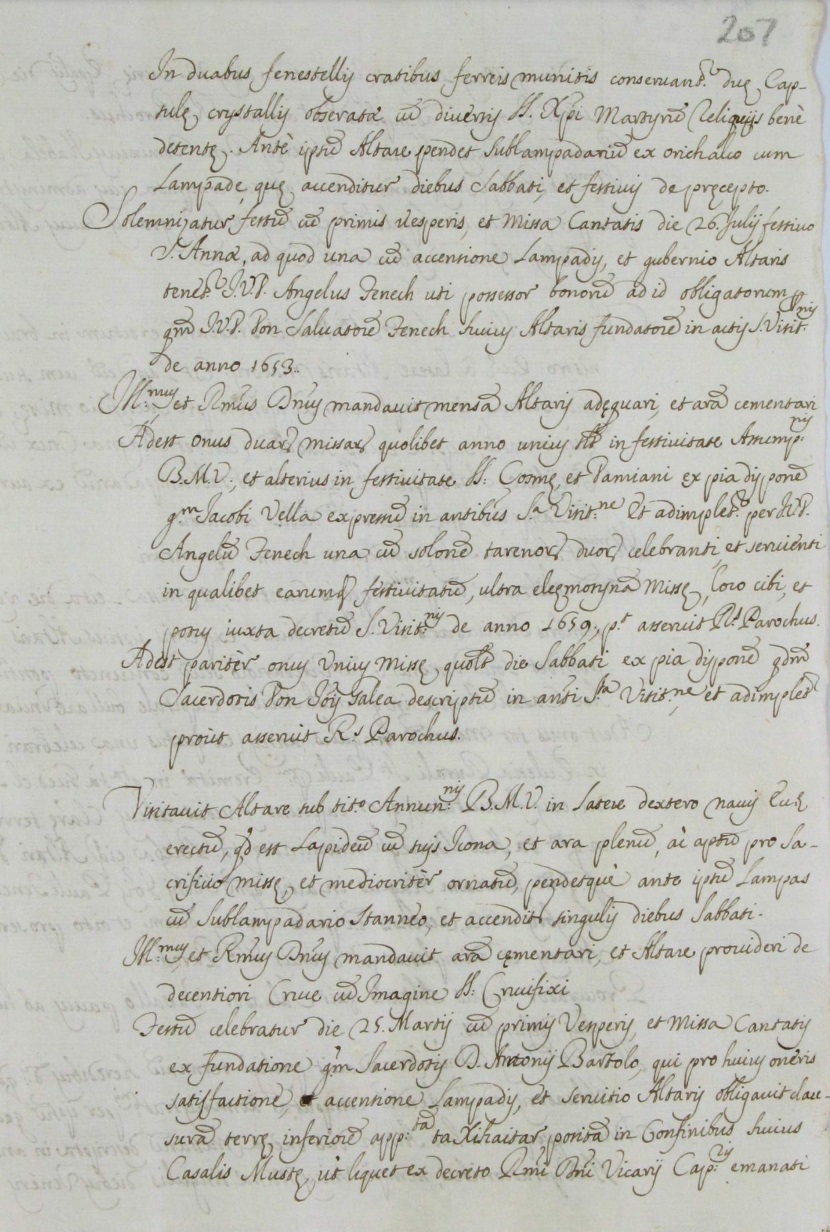 207
In duabus fenestellis cratibus ferreis munitis conservant.r duę Cap-
sulę crystallis obseratæ cū diversis SS. Xpi Martyrū Reliquijs benè
detentę. Antè ipsū Altare pendet Sublampadariū ex orichalco cum
Lampade, quę accenditur diebus Sabbati, et festivis de pręcepto.
Solemnizatur festū cū primis Vesperis, et Missa Cantatis die 26. Julij festivo
S. Annæ, ad quod una cū accentione Lampadis, et gubernio Altaris
tenet.r J.V.D. Angelus Zenech uti possessor bonorū ad id obligatorum p
qm̄ J.V.D. Don Salvatorē Zenech huius Altaris fundatorē in actis S. Visit.nis
de anno 1653..
Ill.mus, et Rm̄us Dn̄us mandavit mensā Altaris adęquari, et arā cementari
Adest onus duarū missarū quolibet anno unius in festivitate Assump.nis
B.M.V., et alterius in festivitate SS. Cosmę, et Damiani ex pia disponē
q.m Jacobi Vella expressū in antibus S.a Visit.ne Et adimplet.r per J.V.D.
Angelū Zenech una cū solonē tarenorū duorū celebranti, et servienti
in qualibet earumq festivitatū, ultra eleęmosynā Missę, loco cibi, et
potus iuxta decretū S. Visit.nis de anno 1659, p.t asseruit R.s Parochus.
Adest paritèr onus Unius Missę quolt die Sabbati ex pia disponē qdm̄
Sacerdotis Don Joīs Galea descriptū in anti S.ta Visit.ne, et adimplet.r
prout asseruit R.s Parochus.
Visitavit Altare sub tit.o Annun.nis B.M.V. in latere dextero navis Eccę
erectū, qd est Lapideū cū suis Icona, et ara plenū, ac aptū pro Sa-
crificio missę, et mediocritèr ornatū, pendetquè ante ipsū Lampas
cū Sublampadario Stanneo, et accendit.r singulis diebus Sabbati.
Ill.mus, et Rm̄us Dn̄us mandavit arā cęmentari, et Altare provideri de
decentiori Cruce cū Imagine SS. Crucifixi
Festū celebratur die 25. Martij cū primis Vesperis, et Missa Cantatis
ex fundatione qm̄ Sacerdotis D. Antonij Bartolo, qui pro huius onèris
satisfactione, et accentione Lampadis, et servitio Altaris obligavit clau-
surā terrę inferiorē app.tā ta Xihaitar positā in Confinibus huius
Casalis Mustę, ut liquet ex decreto Rm̄i Dn̄i Vicarij Cap.ris emanati